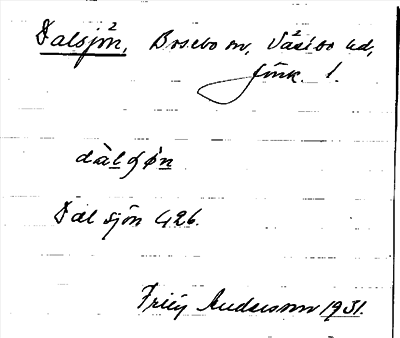 Dalsjön, Bosebo sn, Västbo hd,
Jönk. l.
dàlʃøn
Dalsjön 426.
Frity Andersson 1931.